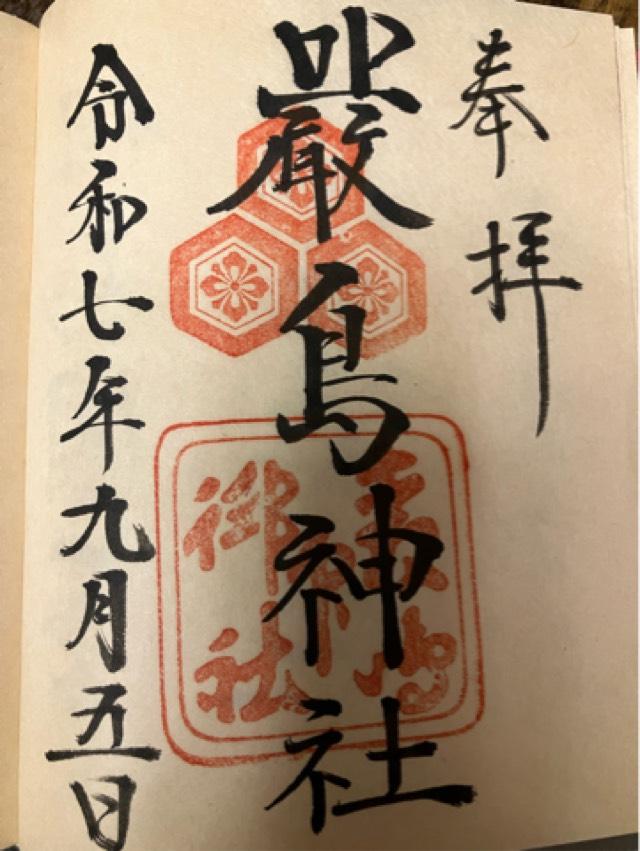 奉拝
嚴島神社
令和七年九月五日